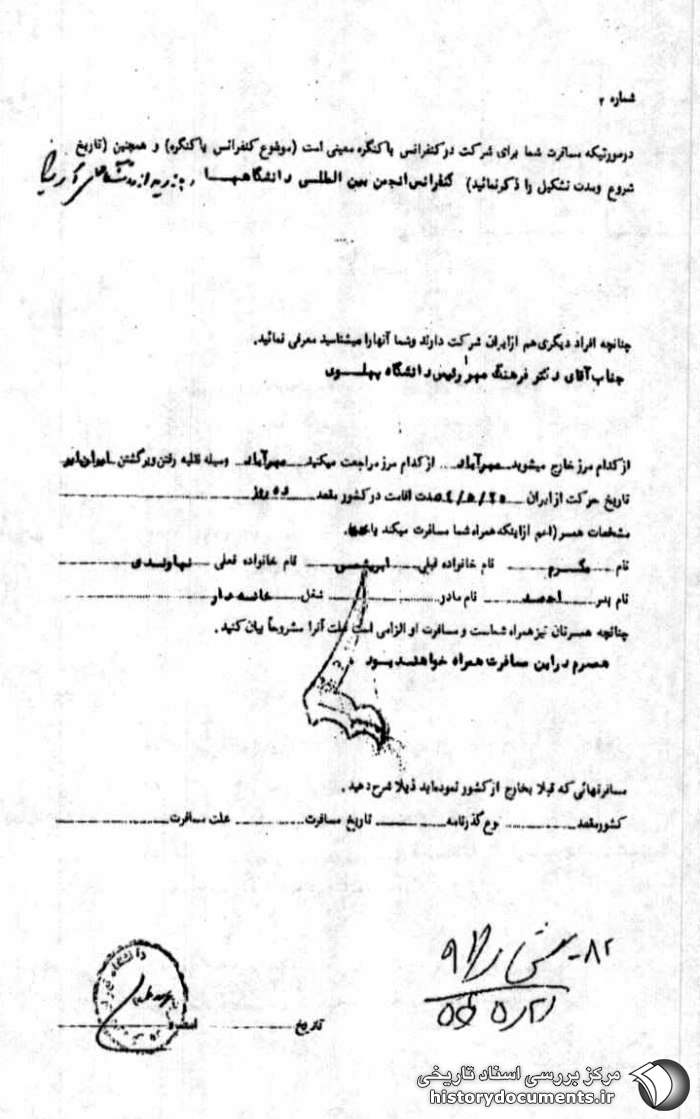 شماره ۲
درصورتیکه مسافرت شما برای شرکت در کنفرانس یا کنگره معینی است (موضوع کنفرانس یا کنگره) و همچنین (تاریخ
شروع ومدت تشکیل را ذکرنمائید) کنفرانس انجمن بین المللی دانشگاهها
چنانچه افراد دیگری هم ازایران شرکت دارند وشما آنهارا میشناسید معرفی نمائید.
جناب آقای دکتر فرهنگ مهر رئیس دانشگاه پهلوی
از کدام مرز خارج میشوید مهرآباد از کدام مرز مراجعت میکنید مهرآباد وسیله نقلیه رفتن وبرگشتن ایران ایر
تاریخ حرکت از ایران مدت اقامت در کشور مقصد ده روز
مشخصات همسر (اعم ازاینکه همراه شما مسافرت میکند یا
نام مکرم نام خانواده قبلی ابریشمی نام خانواده فعلی نهاوندی
نام پدر احمد نام مادر شغل خانه دار
چنانچه همسرتان نیز همراه شماست و مسافرت او الزامی است علت آنرا مشروحاً بیان کنید.
همسرم دراین مسافرت همراه خواهند بود
مسافرتهائی که قبلا بخارج از کشور نموده‌اید ذیلا شرح دهید.
کشورمقصد نوع گذرنامه تاریخ مسافرت علت مسافرت
تاریخ امضاء
مرکز بررسی اسناد تاریخی
historydocuments.ir